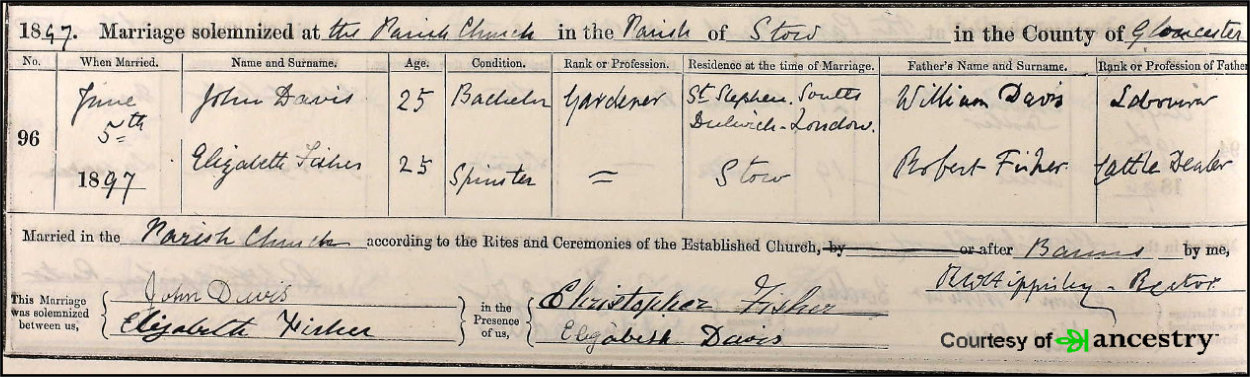 1897. Marriage solemnized at the Parish Church in the Parish of Stow in the County of Gloucester
No. When Married. Name and Surname. Age. Condition. Rank or Profession. Residence at the time of Marriage. Father's Name and Surname. Rank or Profession of Father
96 June 5th 1897
John Davis 25 Bachelor Gardener St Stephen. South Dulwich-London. William Davis Labourer
Elizabeth Fisher 25 Spinster = Stow Robert Fisher. Cattle Dealer
Married in the Parish Church according to the Rites and Ceremonies of the Established Church, by or after Banns by me,
Hippisley - Rector.
This Marriage was solemnized between us,
John Davis
Elizabeth Fisher
in the Presence of us,
Christopher Fisher
Elizabeth Davis
Courtesy of ancestry